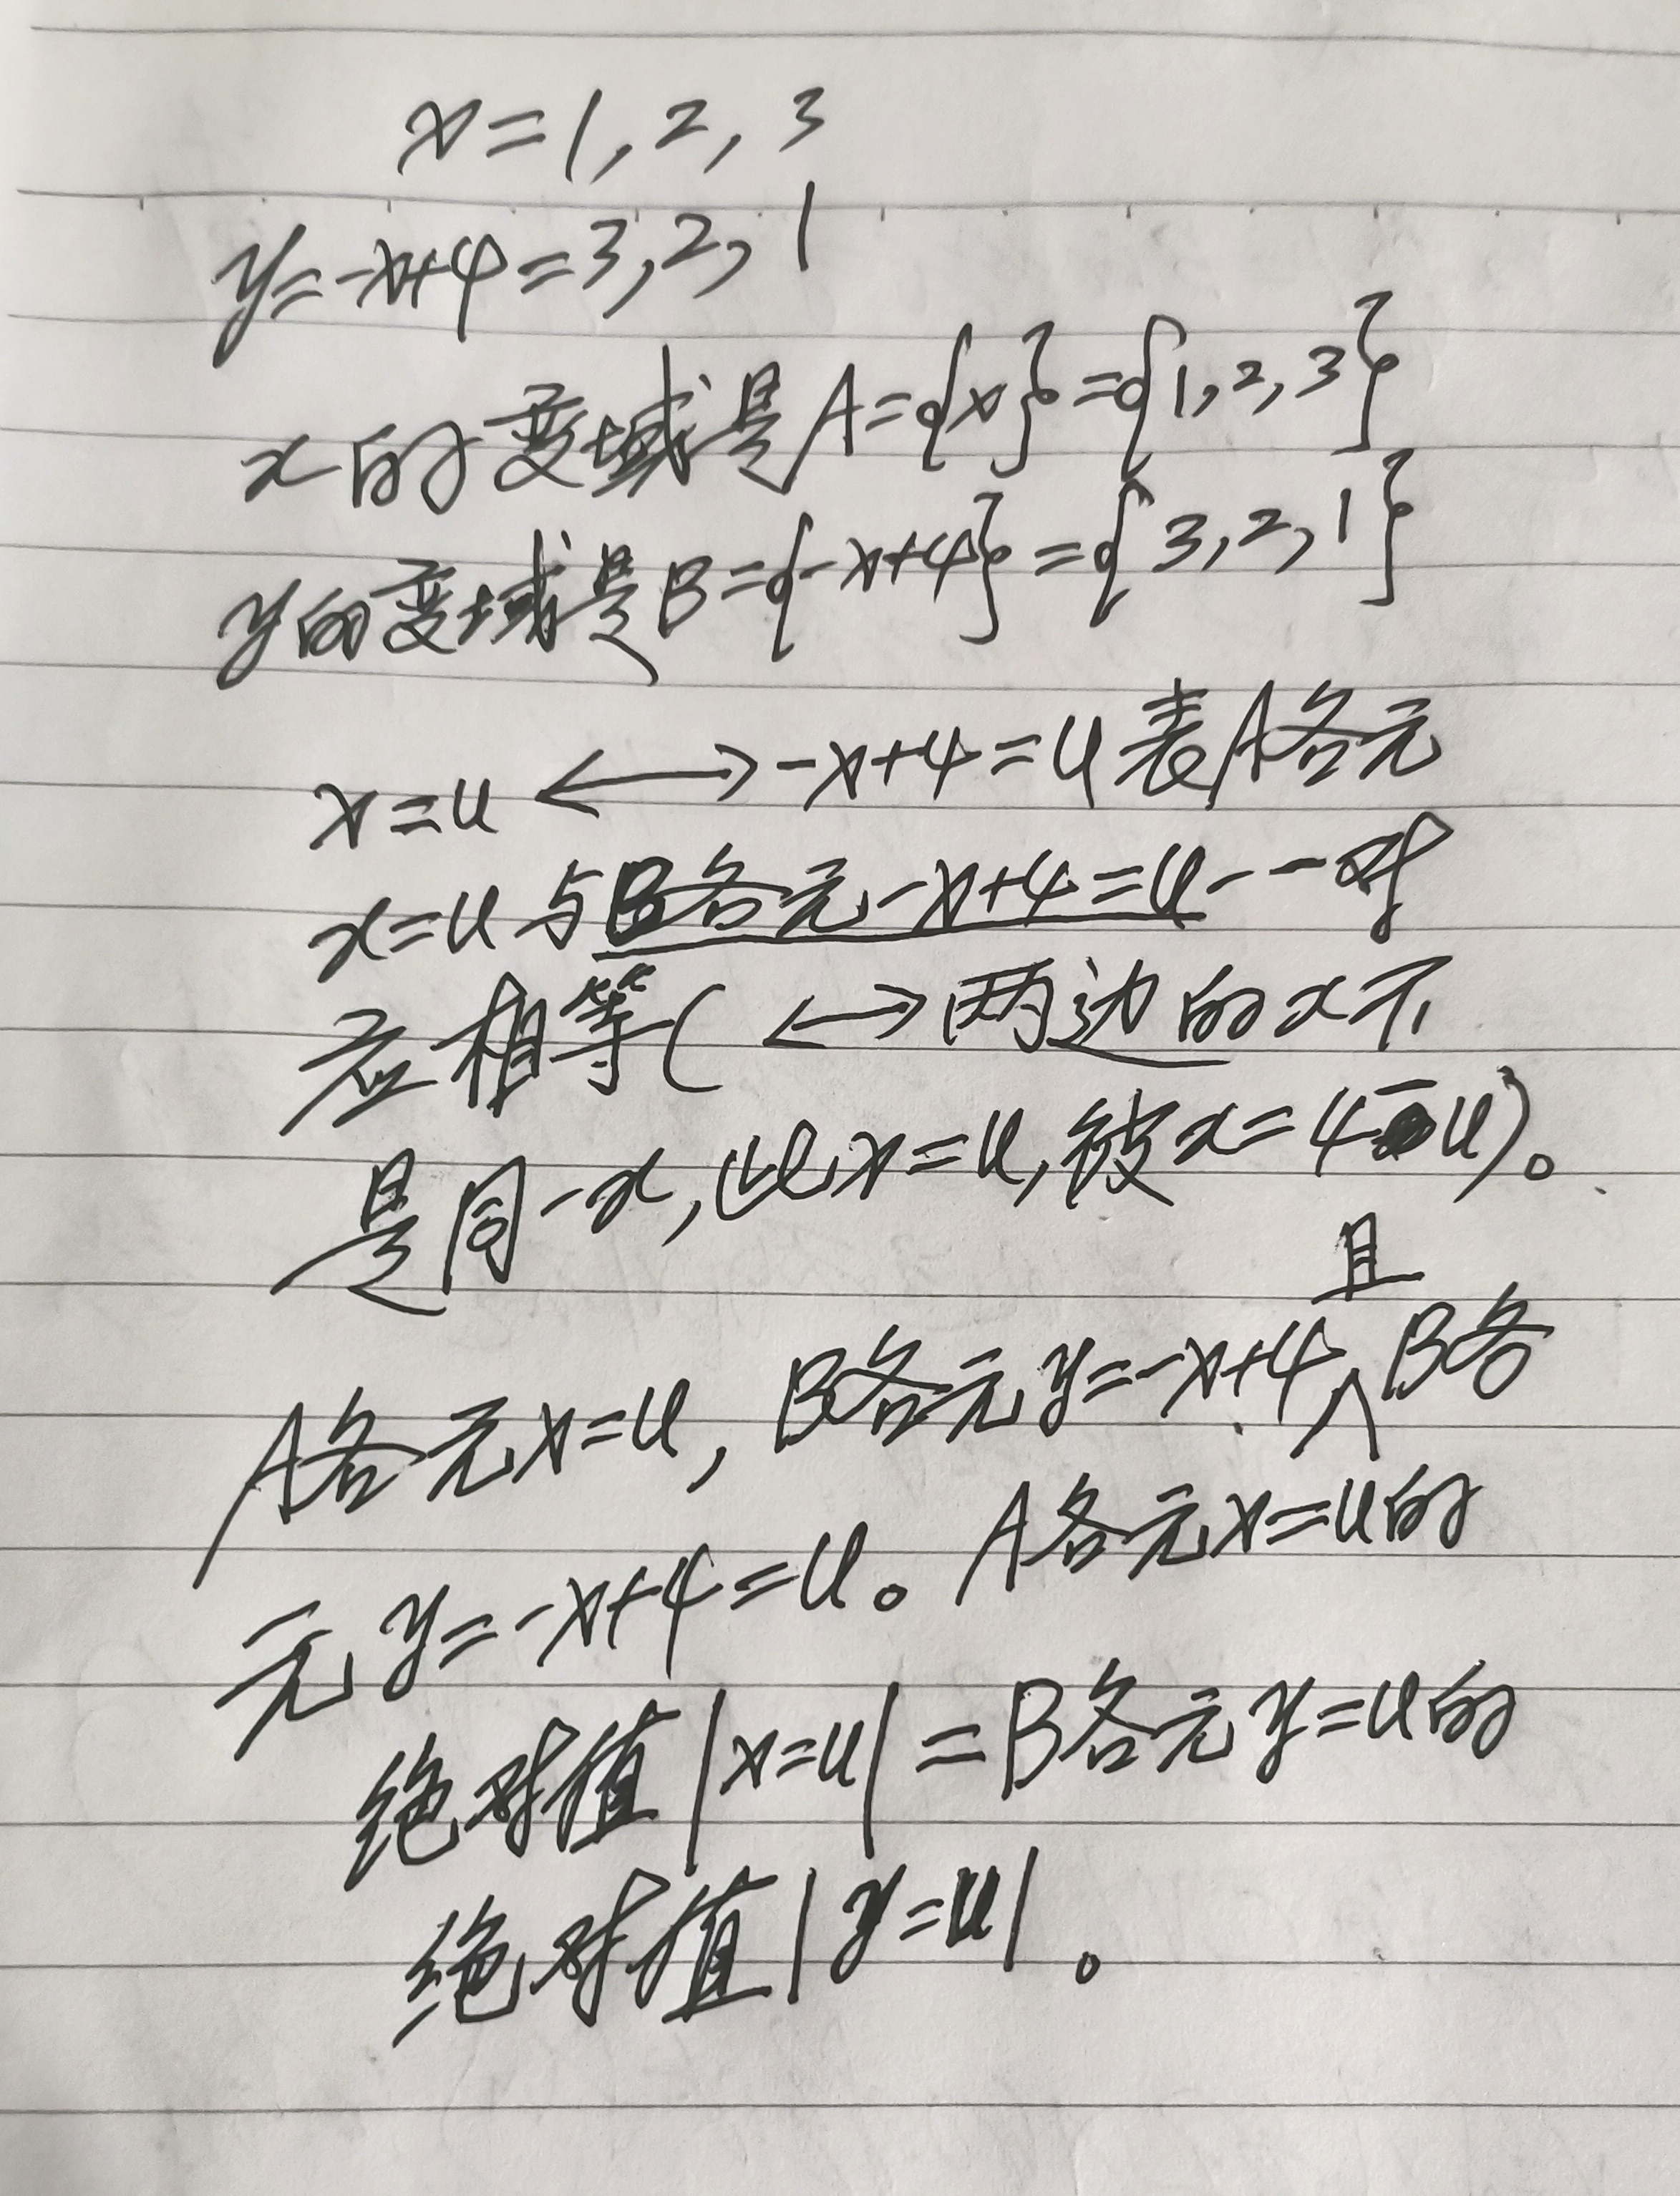 x=1,2,3
y=-x+4=3,2,1
x的变域是A={x}={1,2,3}
y的变域是B={-x+4}={3,2,1}
x=u⟷-x+4=u表A各元
x=u与B各元-x+4=u一一对
应相等(⟷两边的x不
是同一x,此x=u,彼x=4-u)。
且
A各元x=u,B各元y=-x+4∧B各
元y=-x+4=u。A各元x=u的
绝对值|x=u|=B各元y=u的
绝对值|y=u|。